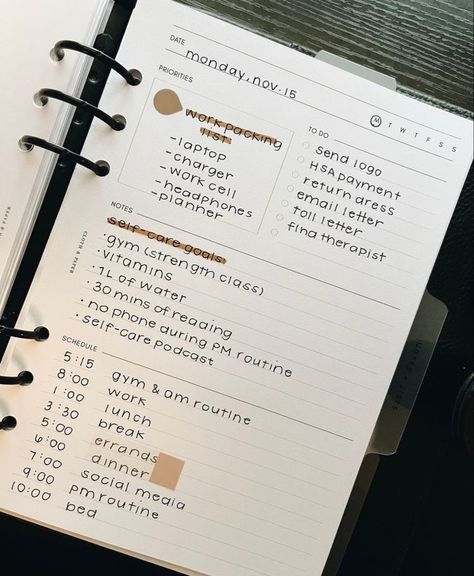 DATE
monday, nov. 15
M T W T F S S
PRIORITIES
work packing
list
- laptop
- charger
- work cell
- headphones
- planner
TO DO
send logo
HSA payment
return dress
email letter
toll letter
find therapist
NOTES
self-care goals
· gym (strength class)
· vitamins
· 1L of water
· 30 mins of reading
· no phone during P.M. routine
· self-care podcast
SCHEDULE
5:15 gym & am routine
8:00 work
1:00 lunch
3:30 break
5:00 errands
6:00 dinner
7:00 social media
9:00 pm routine
10:00 bed
CLOTH & PAPER